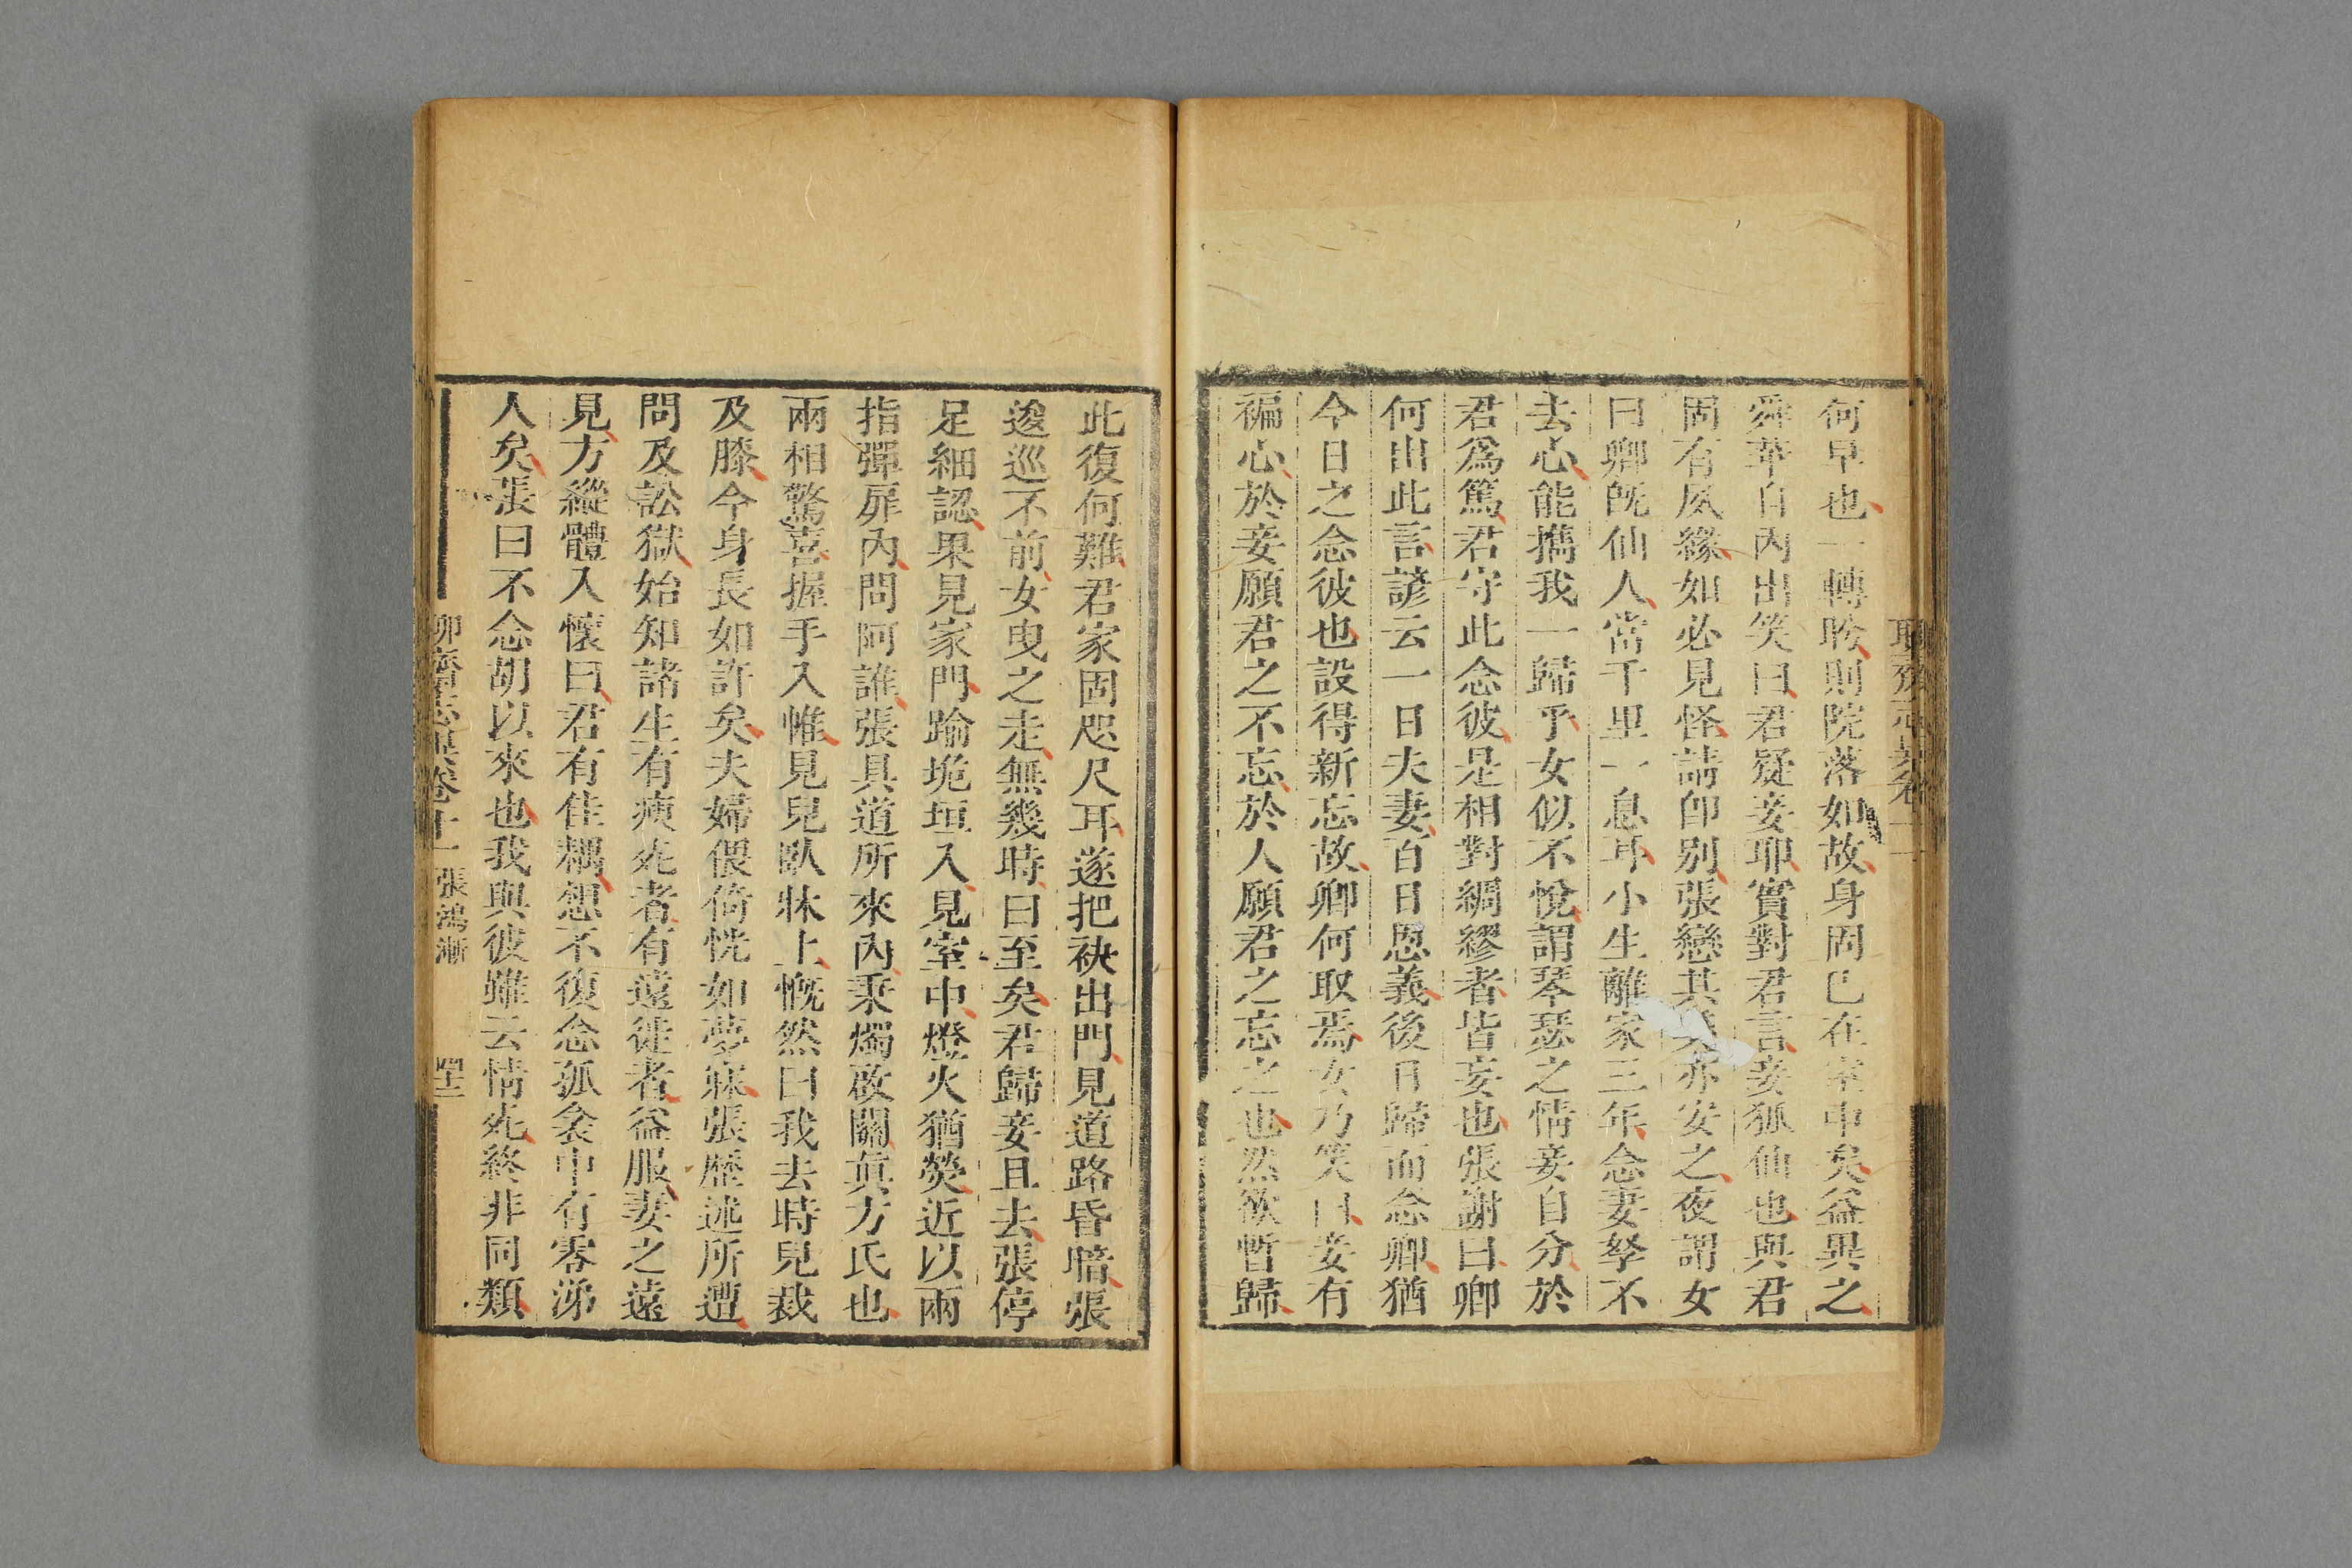 何早也一轉盻則院落如故身固已在室中矣益異之
舜華自內出笑曰君疑妾耶實對君言妾狐仙也與君
固有夙緣如必見怪請卽別張戀其美亦安之夜謂女
曰卿旣仙人當千里一息耳小生離家三年念妻孥不
去心能攜我一歸乎女似不悅謂琴瑟之情妾自分於
君爲篤君守此念彼是相對綢繆者皆妄也張謝曰卿
何出此言諺云一日夫妻百日恩義後日歸而念卿猶
今日之念彼也設得新忘故卿何取焉女乃笑曰妾有
褊心於妾願君之不忘於人願君之忘之也然欲暫歸
此復何難君家固咫尺耳遂把袂出門見道路昏暗張
逡巡不前女曳之走無幾時曰至矣君歸妾且去張停
足細認果見家門踰垝垣入見室中燈火猶熒近以兩
指彈扉內問阿誰張具道所來內秉燭啟關眞方氏也
兩相驚喜握手入帷見兒臥牀上慨然曰我去時兒裁
及膝今身長如許矣夫婦偎倚恍如夢寐張歷述所遭
問及訟獄始知諸生有瘐死者有遠徙者益服妻之遠
見方縱體入懷曰君有佳耦想不復念孤衾中有零涕
人矣張曰不念胡以來也我與彼雖云情死終非同類
聊齋志異卷十一 張鴻漸